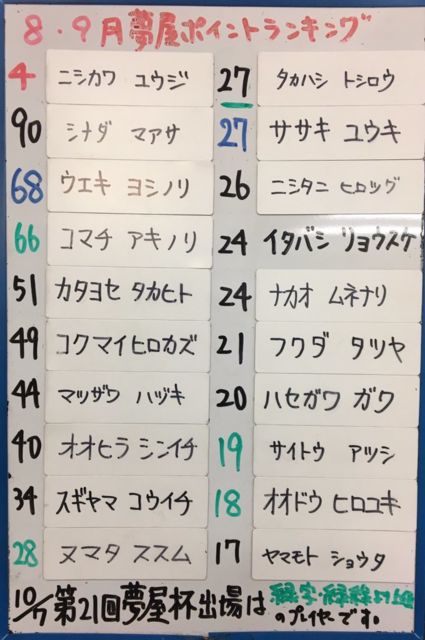 8・9月夢屋ポイントランキング
4 ニシカワ ユウジ
90 シナダ マアサ
68 ウエキ ヨシノリ
66 コマチ アキノリ
51 カタヨセ タカヒト
49 コクマイヒロカズ
44 マツザワ ハヅキ
40 オオヒラ シンイチ
34 スギヤマ コウイチ
28 ヌマタ ススム
27 タカハシ トシロウ
27 ササキ ユウキ
26 ニシタニ ヒロツグ
24 イタバシ リョウスケ
24 ナカオ ムネナリ
21 フクダ タツヤ
20 ハセガワ ガク
19 サイトウ アツシ
18 オオドウ ヒロユキ
17 ヤマモト ショウタ
10/7第21回夢屋杯出場は
緑字・緑線より上位
のプレイヤーです。